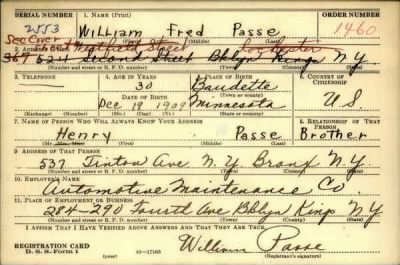 SERIAL NUMBER 1. NAME (Print) ORDER NUMBER
2553 William Fred Passe 1460
(First) (Middle) (Last)
See Cover
Street Rochester
367 524 Street Bklyn Kings N.Y.
(Number and street or R. F. D. number) (Town) (County) (State)
3. TELEPHONE 4. AGE IN YEARS 5. PLACE OF BIRTH 6. COUNTRY OF CITIZENSHIP
30 Baudette
DATE OF BIRTH (Town or county)
Dec 18 1909 Minnesota U S.
(Exchange) (Number) (Mo.) (Day) (Yr.) (State or country)
7. NAME OF PERSON WHO WILL ALWAYS KNOW YOUR ADDRESS 8. RELATIONSHIP OF THAT PERSON
Henry Passe Brother
(First) (Middle) (Last)
9. ADDRESS OF THAT PERSON
537 Tinton Ave N.Y. Bronx N.Y.
(Number and street or R. F. D. number) (Town) (County) (State)
10. EMPLOYER'S NAME
Automotive Maintenance Co.
11. PLACE OF EMPLOYMENT OR BUSINESS
284-290 Fourth Ave Bklyn Kings N.Y.
(Number and street or R. F. D. number) (Town) (County) (State)
I AFFIRM THAT I HAVE VERIFIED ABOVE ANSWERS AND THAT THEY ARE TRUE.
REGISTRATION CARD William Passe
D. S. S. Form 1 (over) 16-17105 (Registrant's signature)